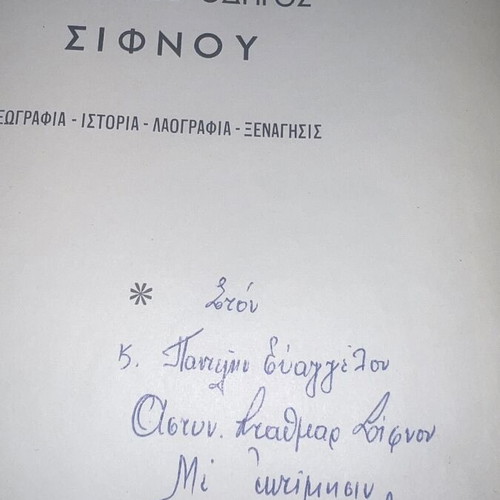 ΟΔΗΓΟΣ
ΣΙΦΝΟΥ
ΕΩΓΡΑΦΙΑ - ΙΣΤΟΡΙΑ - ΛΑΟΓΡΑΦΙΑ - ΞΕΝΑΓΗΣΙΣ
* Στόν
κ. Παντελήν Εὐαγγέλου
Ἀστυν. Σταθμάρ Σίφνου
Μὲ ἐκτίμησιν